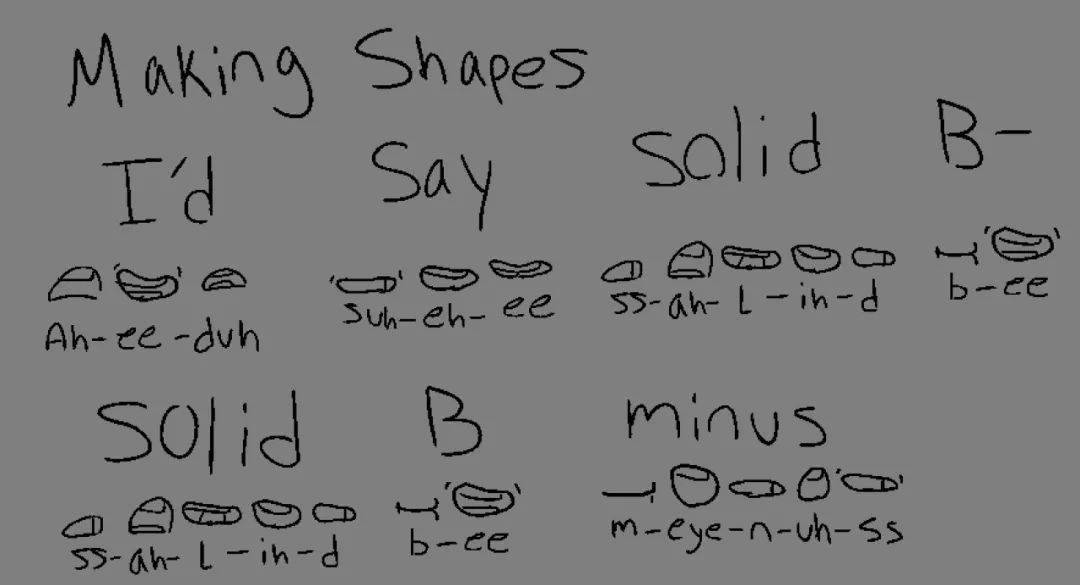 Making Shapes
I'd Say Solid B-
Ah-ee-duh suh-eh-ee ss-ah-l-ih-d b-ee
Solid B minus
ss-ah-l-ih-d b-ee m-eye-n-uh-ss